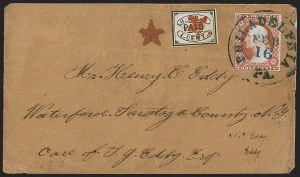 U.S.P.O.
PAID
1 CENT.
PHILADELPHIA
FEB
16
PA.
Mrs. Henry C. Eddy
Waterford, Saratoga County N.Y.
Care of T. G. Eddy Esq
Eddy